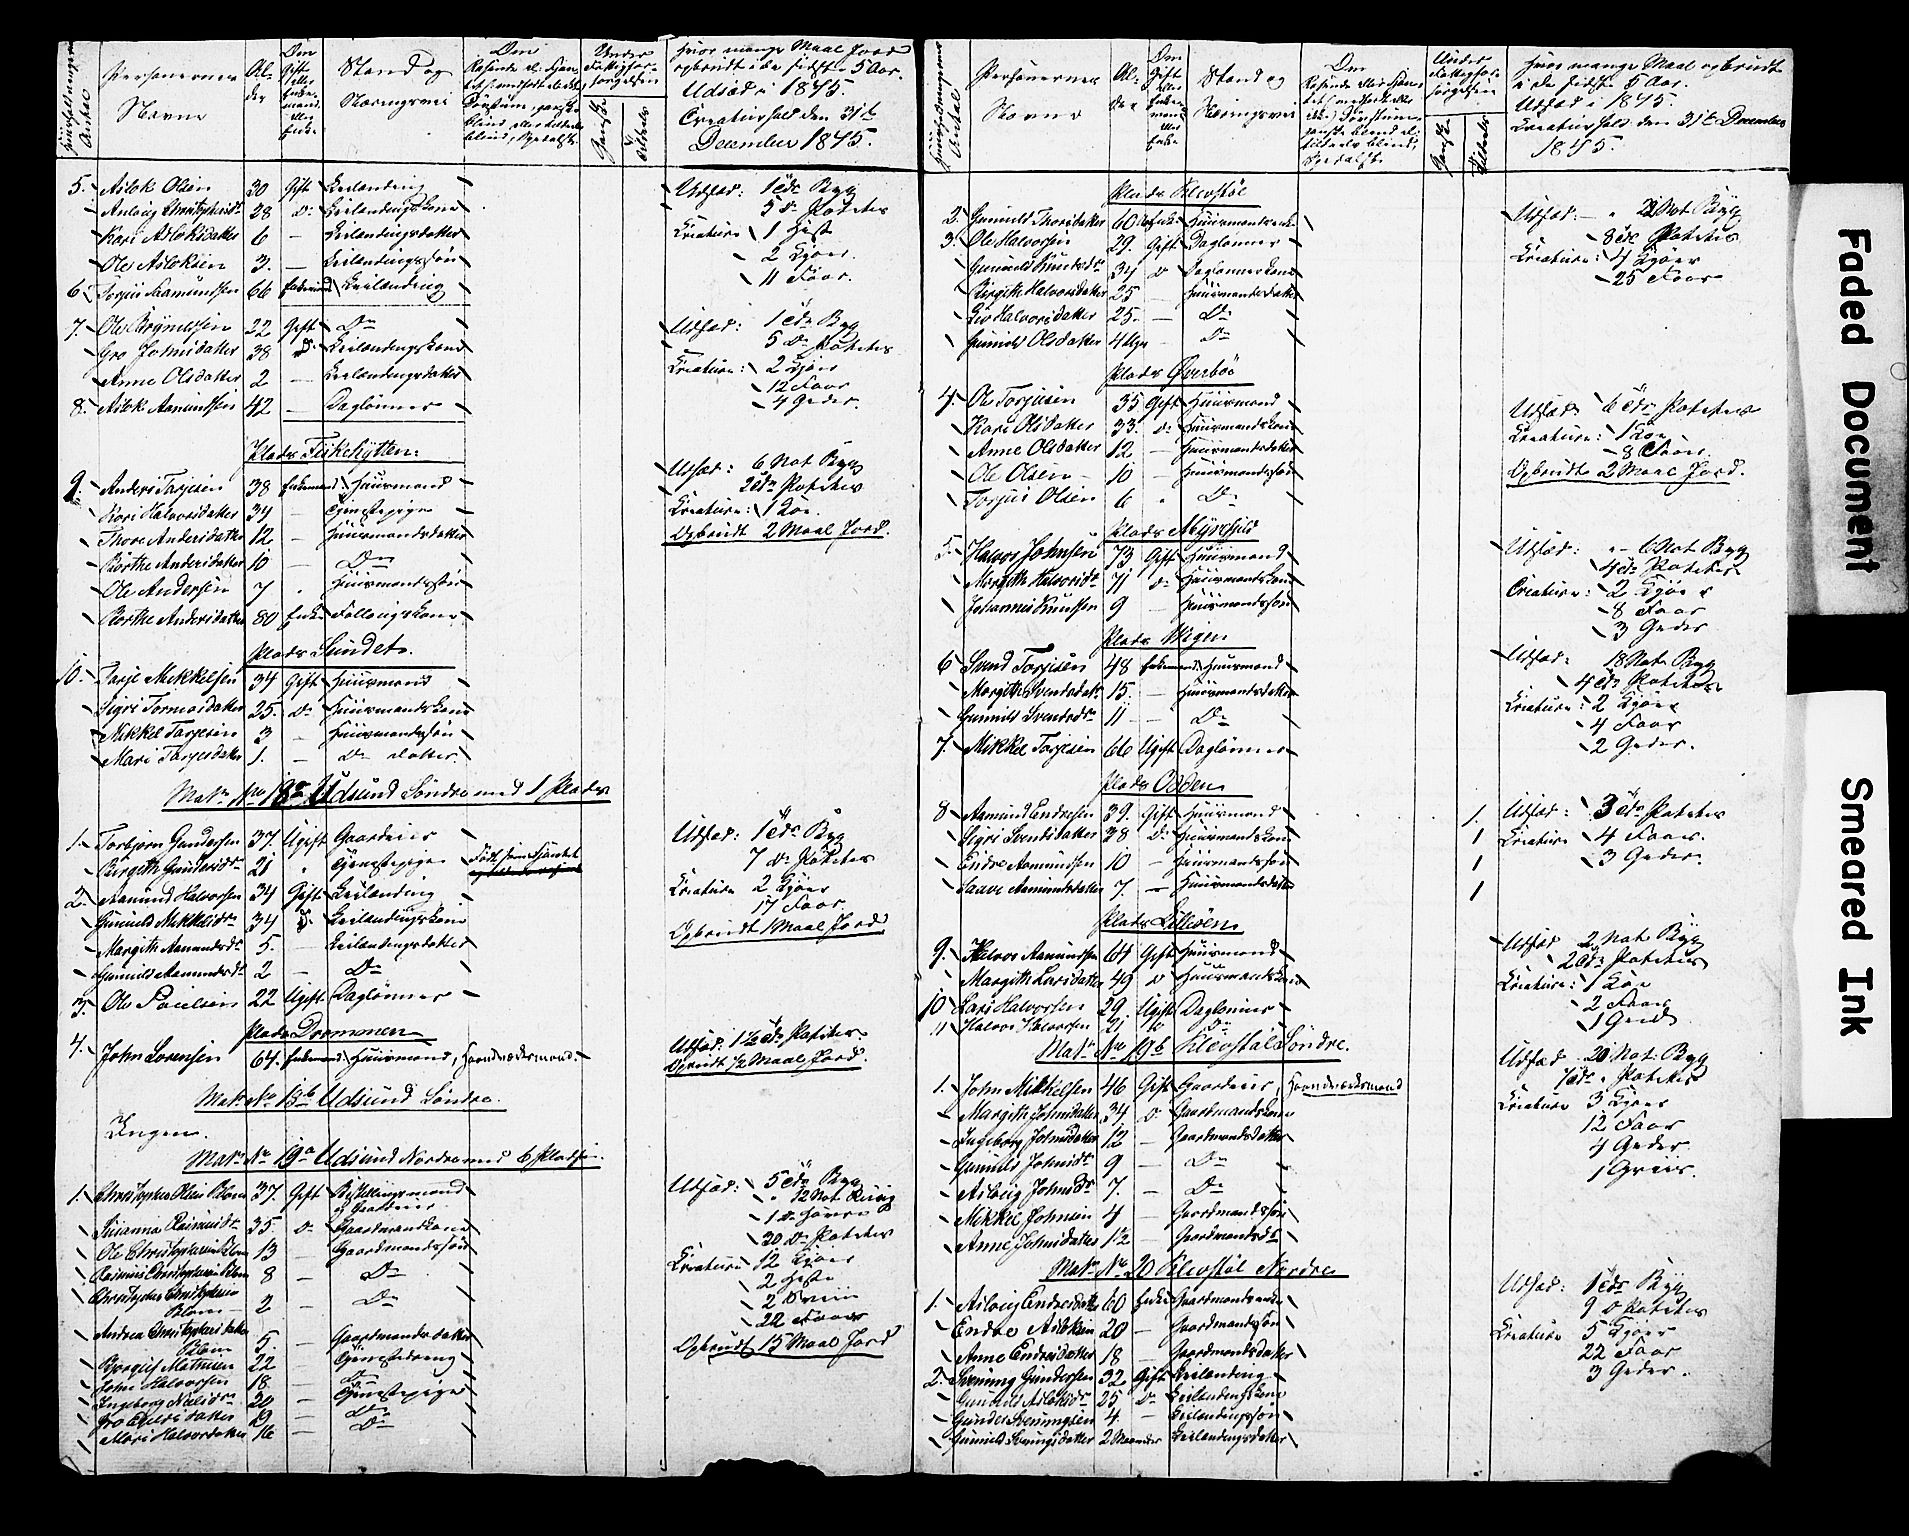 Personernes Navne
Al-
der
Stand og
Næringsvei
Hvor mange Maal Jord
opbrudt i de sidste 5 Aar.
Udsæd i 1845.
Creaturhold den 31te
December 1845.
5. Aslok Olsen 30 Gift Leilænding
Aslaug Christophersdr 28 Do Leilændingskone
Kari Asloksdatter 6 — Leilændingsdatter
Ole Asloksen 3. — Leilændingssøn
Udsæd: 1 Tde Byg
5 Do Poteter
Creature 1 Hest
2 Kjøer
11 Faar.
6. Torjus Aamundsen 66 Enkemand Leilænding
7. Ole Brynelsen 22 Gift Do
Gro Johnsdatter 38 Do Leilændingskone
Anne Olsdatter 2 — Leilændingsdatter
8. Aslok Aamundsen 42 — Daglønner
Udsæd: 1 Tde Byg
5 Do Poteter
Creature: 2 Kjøer
12 Faar
4 Geder.
Plads Fiskehytten:
9. Anders Tarjesen 38 Enkemand Huusmand
Kari Halvorsdatter 34 — Tjenestepige
Thore Andersdatter 12 — Huusmandsdatter
Berthe Andersdatter 10 — Do
Ole Andersen 7 Huusmandssøn
Berthe Andersdatter 80 Enke
Udsæd: 6 Not Byg
2 Tdr Poteter
Creature: 1 Koe.
Opbrudt 2 Maal Jord.
Plads Sundet.
10. Tarje Mikkelsen 34 Gift Huusmand
Sigri Tormosdatter 25. Do Huusmandskone
Mikkel Tarjesen 3 — Huusmandssøn
Mari Tarjesdatter 1. — Do datter.
Matr No 18a Udsund Søndre med 1 Plads
1. Torbjørn Gundersen 37. Ugift Gaardeier
Birgith Gundersdr 21 Tjenestepige
2. Aamund Halvorsen 34 Gift Leilænding
Gunild Mikkelsdr 34 Do Leilændingskone
Margith Aamundsdr 5. — Leilændingsdatter
Gunild Aamundsdr 2 — Do
3. Ole Poulsen 22 Ugift Daglønner
Udsæd: 1 Tde Byg
7 Do Poteter
Creature 2 Kjøer
17 Faar.
Opbrudt 1 Maal Jord.
Plads Drommen
4. John Sørensen 64. Enkemand Huusmand, Haandværksmand.
Udsæd: 1½ Tde Poteter.
Opbrudt ½ Maal Jord.
Matr No 18b Udsund Søndre.
Ingen.
Matr No 19a Udsund Nordre med 6 Pladse.
1. Christopher Olsen Blom 37. Gift Bestillingsmand
og Gaardeier
Susanna Rasmusdr 35 Do Gaardmandskone
Ole Christophersen Blom 13 — Gaardmandssøn
Rasmus Christophersen Blom 8 — Do
Christopher Christophersen
Blom — 2 — Do
Andrea Christophersdatter
Blom 5. — Gaardmandsdatter
Borgus Mathisen 22 — Tjenestedreng
John Halvorsen 18 — Do
Ingeborg Nilsdr 20 — Tjenestepige
Gro 19 — Do
Mari Halvorsdatter 16 — Do
Udsæd: 5 Tdr Byg
12 Not Rug
1 Do Havre
20 Do Poteter
Creature 12 Kjøer
2 Heste
2 Sviin
22 Faar
Opbrudt 15 Maal Jord
Personernes
Navne
Stand og
Næringsvei
Hvor mange Maal opbrudt
i de sidste 5 Aar.
Udsæd i 1845.
Creaturhold den 31te December
1845.
Plads Klevstøl
2. Gunild Thorsdatter 60 Enke Huusmandsenke
3. Ole Halvorsen 29. Gift Daglønner
Gunild Knutsdr 34 Do Daglønnerkone
Birgith Halvorsdatter 25 — Huusmandsdatter
Liv Halvorsdatter 25. — Do
Gunild Olsdatter 4 Uger — Do
Udsæd: 22 Not Byg
8 Tdr Poteter
Creature: 4 Kjøer
25 Faar
Plads Øverbøe
4. Ole Torjusen 35 Gift Huusmand
Kari Olsdatter 33. Do Huusmandskone
Anne Olsdatter 12 — Huusmandsdatter
Ole Olsen 10 — Huusmandssøn
Torjus Olsen 6 Do
Udsæd: 6 Tdr Poteter
Creature: 1 Koe
8 Faar.
Opbrudt 2 Maal Jord.
5. Halvor Johnsen 73 Gift Huusmand
Margith Halvorsdr 71 Do Huusmandskone
Johannes Knutsen 9 — Huusmandssøn
Udsæd: 6 Not Byg
4 Tdr Poteter
Creature: 2 Kjøer
8 Faar
3 Geder
Plads Wigen
6 Svend Torjesen 48 Enkemand Huusmand
Margith Svendsdatr 15. — Huusmandsdatter
Gunild Svendsdr 11 — Do
7. Mikkel Torjesen 66 Ugift Daglønner
Udsæd: 18 Not Byg
4 Tdr Poteter
Creature: 2 Kjøer
4 Faar
2 Geder.
Plads Odden
8 Aamund Endresen 39. Gift Huusmand 1.
Sigri Svendsdatter 38 Do Huusmandskone 1
Endre Aamundsen 10 — Huusmandssøn 1
Saave Aamundsdatter 7. — Huusmandsdatter 1
Udsæd: 3 Tdr Poteter
Creature 4 Faar.
3 Geder.
Plads Lilleøen
9. Halvor Aamundsen 64 Gift Huusmand
Margith Larsdatter 49 Do Huusmandskone
10 Lars Halvorsen 29. Ugift Daglønner
11 Halvor Halvorsen 21 Do Do
Udsæd 2 Not Byg
2 Tdr Poteter
Creature: 1 Koe
2 Faar
1 Geed
Matr No 19b Klevstøl Søndre.
1. John Mikkelsen 46 Gift Gaardeier, Haandværksmand
Margith Johnsdatter 34 Do Gaardmandskone
Ingeborg Johnsdatter 12 — Gaardmandsdatter
Gunild Johnsdr 9 — Do
Aslaug Johnsdr 7. — Do
Mikkel Johnsen 4 — Gaardmandssøn
Anne Johnsdatter 1½ — Gaardmandsdr
Udsæd 20 Not Byg
7 Tdr Poteter
Creature 3 Kjøer
12 Faar
4 Geder
1 Griis.
Matr No 20 Klevstøl Nordre
1. Aslaug Endresdatter 60 Enke Gaardmandsenke
Endre Asloksen 20 — Gaardmandssøn
Anne Endresdatter 18 — Gaardmandsdatter
2. Svenung Gundersen 32 Gift Leilænding
Gunild Asloksdr 25 Do Leilændingskone
Gunder Svenungsen 4. — Leilændingssøn
Gunild Svenungsdatter 2 Maaneder Leilændingsdatter
Udsæd: 1 Tde Byg
9 Do Poteter
Creature 5 Kjøer
22 Faar
3 Geder.
Faded Document
Smeared Ink